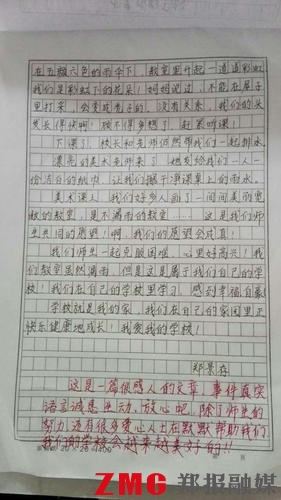 在五颜六色的雨伞下，教室里升起一道道彩虹
我们是彩虹下的花朵！妈妈说过，不能在屋子
里打伞，会变成秃子的，没有关系，我们的头
发长得快啊！顾不得多想了，赶紧听课！
下课了，校长和老师依然带我们一起排水
漂亮的美术老师来了，她发给我们一人一
份洁白的纸巾，让我们擦干净课桌上的雨水。
美术课上，我们好多人画了一间间美丽的宽
敞的教室，是不漏雨的教室……这是我们师
生共同的愿望！啊，我们的愿望会成真！
我们师生一起克服困难，心里好高兴！我
们教室虽然漏雨，但是这是属于我们自己的学
校！我们在自己的学校里学习，感到幸福、自豪
学校就是我们的家，我们在自己的家园里正
快乐健康地成长！我爱我的学校！
郑景存
这是一篇很感人的文章，事件真实
语言诚恳生动，放心吧，除了师生的
努力，还有很多爱心人士在默默帮助我们
我们的学校会越来越美好的！！
ZMG 郑报融媒